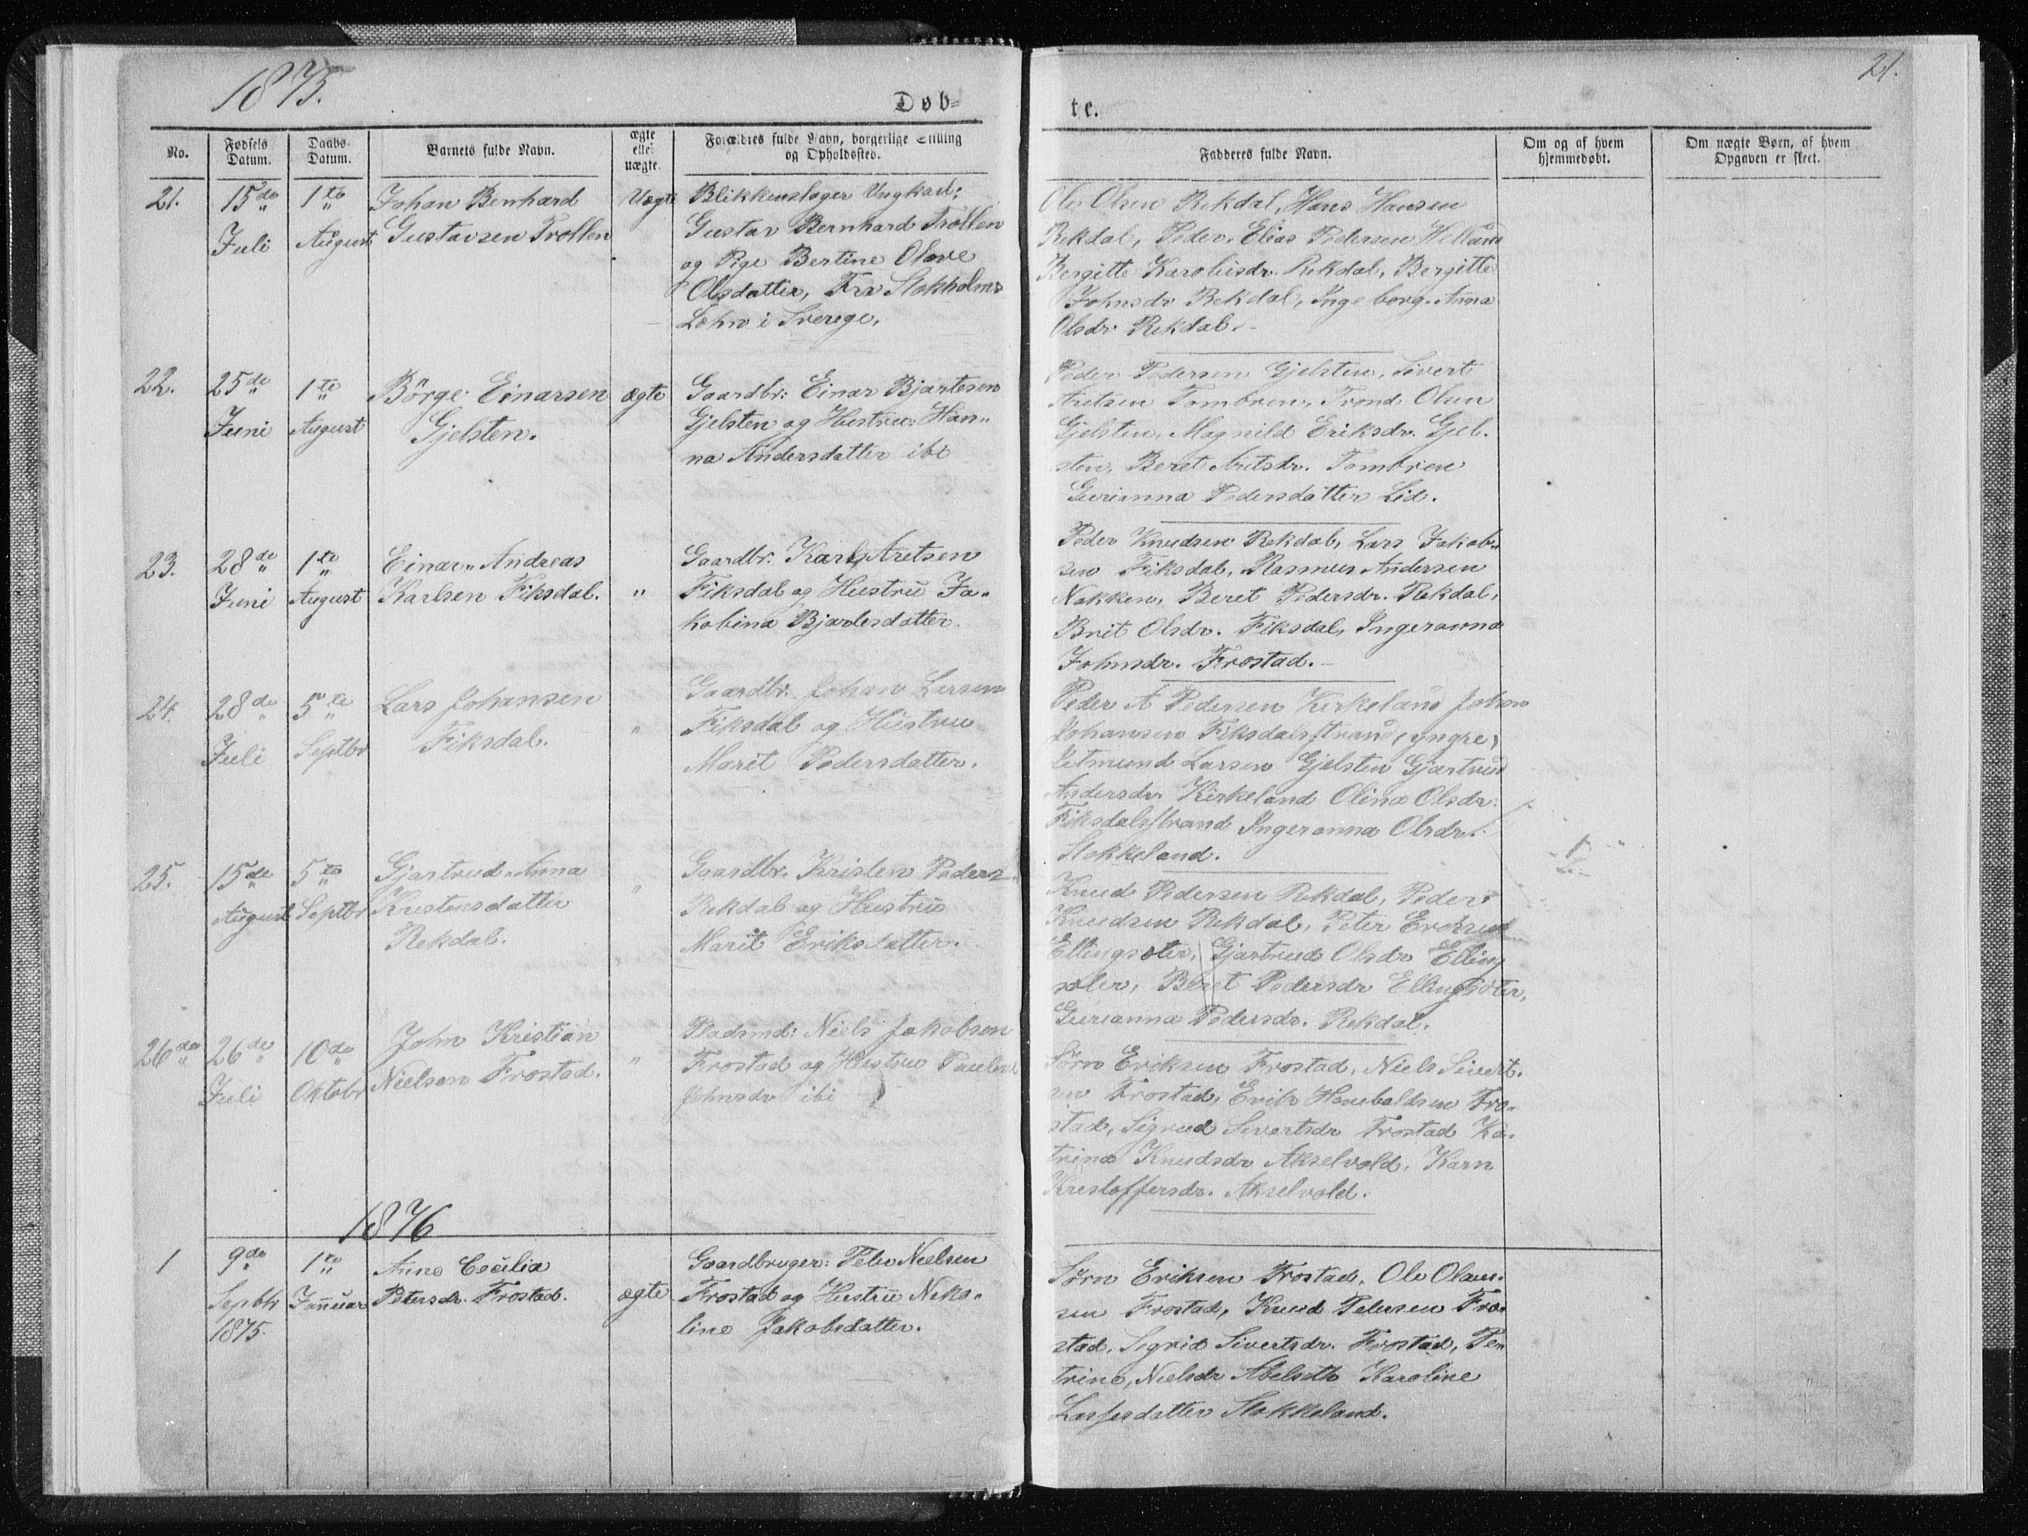 1875.
21.
Døb-
te.
No.
Fødsels Datum.
Daabs-Datum.
Barnets fulde Navn.
ægte eller uægte.
Forældres fulde Navn, borgerlige Stilling og Opholdssted.
Fadderes fulde Navn.
Om og af hvem hjemmedøbt.
Om uægte Børn, af hvem Opgaven er skeet.
21.
15de Juli
1te August
Johan Benhard
Gustavsen Trollen
Uægte
Blikkenslager Ungkarl:
Gustav Bernhard Trollen
og Pige Bertine Olave
Olsdatter, Fra Stokholms
Lehn i Sverige.
Ole Olsen Rekdal, Hans Hansen
Rekdal, Peder Elias Pedersen Helland
Bergitte Karolusdr. Rekdal, Bergitte
Johnsdr Rekdal, Ingeborg Anna
Olsdr Rekdal.
22.
25de Juni
1te August
Börge Einarsen
Gjelsten.
ægte
Gaardbr: Einar Bjartesen
Gjelsten og Hustru Han-
na Andersdatter ibi
Peder Pedersen Gjelsten, Sivert
Aretsen Tombren, Trond Olsen
Gjelsten, Magnild Eriksdr. Gjel-
sten, Beret Aretsdr. Tombren
Gurianna Pedersdatter Lid.
23.
28de Juni
1te August
Einar Andreas
Karlsen Fiksdal.
"
Gaardbr. Karl Aretsen
Fiksdal og Hustru Ja-
kobina Bjartesdatter.
Peder Knudsen Rekdal, Lars Jakob-
sen Fiksdal, Rasmus Andersen
Nakken, Beret Pedersdr. Rekdal,
Brit Olsdr. Fiksdal, Ingeranna
Johnsdr. Frostad.
24.
28de Juli
5te Septbr
Lars Johansen
Fiksdal.
"
Gaardbr. Johan Larsen
Fiksdal og Hustru
Marit Pedersdatter.
Peder A Pedersen Kirkeland Johan
Johansen Fiksdalsstrand (yngre)
Larsen Gjelsten Gjartrud
Andersdr Kirkeland Olina Olsdr.
Fiksdalsstrand Ingeranna Olsdr.
Stokkeland.
25.
15de August
5te Septbr
Gjartrud Anna
Kristensdatter
Rekdal.
"
Gaardbr. Kristen Peders
Rekdal og Hustru
Marit Eriksdatter.
Knud Pedersen Rekdal, Peder
Knudsen Rekdal, Peter
Ellingsæter, Gjartrud Olsdr Elling
sæter, Beret Pedersdr Ellingsæter,
Gurianna Pedersdr. Rekdal.
26de
26de Juli
10de Oktobr
John Kristian
Nielsen Frostad.
"
Pladsmd: Niels Jakobsen
Frostad og Hustru Pauline
Johnsdr ibi
Sørn Eriksen Frostad, Niels Sivert-
sen Frostad, Erik Haveboldsen Fro-
stad, Sigrid Sivertsdr Frostad Ka-
trina Knudsdr Akselvold, Karn
Kristoffersdr. Akselvold.
1876
1
9de Septbr 1875.
1te Januar
Anne Cecilia
Petersdr. Frostad.
ægte
Gaardbruger: Peter Nielsen
Frostad og Hustru Niko-
line Jakobsdatter.
Sørn Eriksen Frostad, Ole Olaus-
sen Frostad, Knud Petersen Fro-
stad, Sigrid Sivertsdr. Frostad, Pe-
trine, Nielsdr Abelseth Karoline
Lassesdatter Stokkeland.